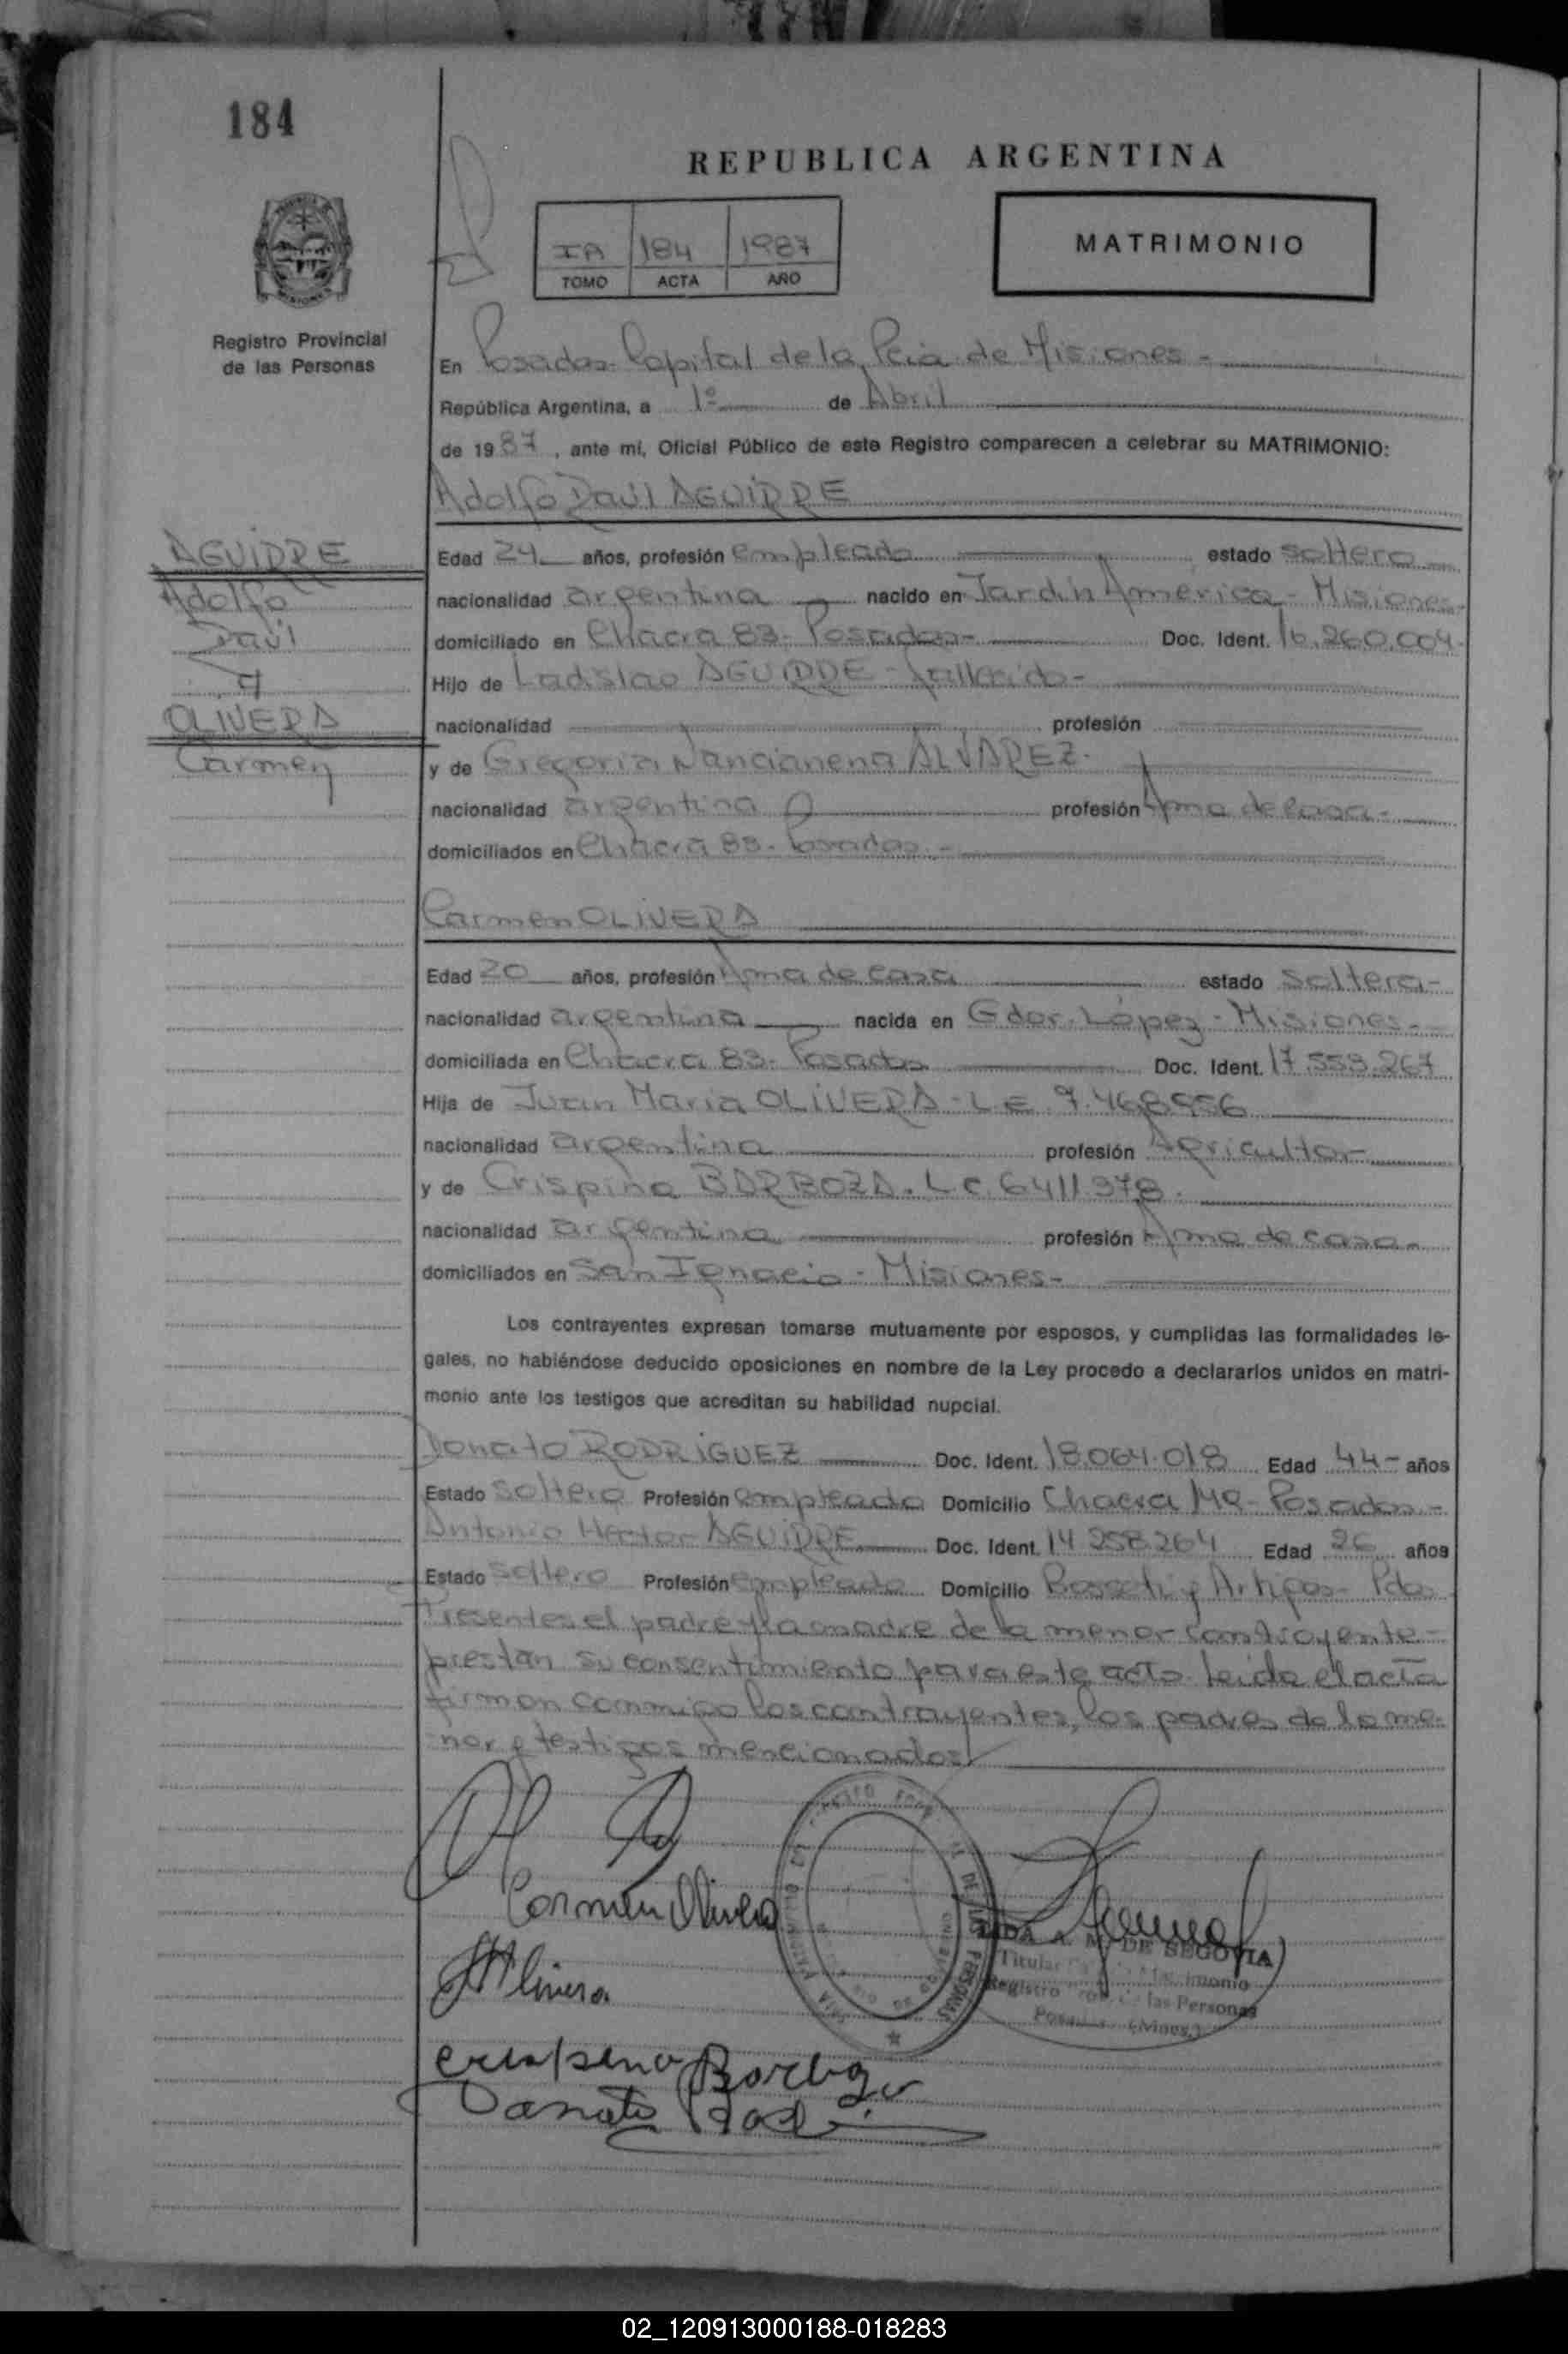 184
REPUBLICA ARGENTINA
IA 184 1987
TOMO ACTA AÑO
MATRIMONIO
MISIONES
Registro Provincial
de las Personas
En Posadas Capital de la Pcia de Misiones -
República Argentina, a 1º de Abril
de 1987, ante mí, Oficial Público de este Registro comparecen a celebrar su MATRIMONIO:
Adolfo Raúl AGUIRRE
AGUIRRE
Adolfo
Raúl
y
OLIVERA
Carmen
Edad 24 años, profesión empleado estado soltero
nacionalidad argentina nacido en Jardín América - Misiones-
domiciliado en Chacra 83- Posadas- Doc. Ident. 16.260.004-
Hijo de Ladislao AGUIRRE - fallecido-
nacionalidad profesión
y de Gregoria ALVAREZ.
nacionalidad argentina profesión Ama de casa-
domiciliados en Chacra 83- Posadas.-
Carmen OLIVERA
Edad 20 años, profesión Ama de casa estado soltera-
nacionalidad argentina nacida en Gdor. López - Misiones-
domiciliada en Chacra 83- Posadas Doc. Ident. 17.553.267
Hija de Juan Maria OLIVERA - L E 7.468956
nacionalidad argentina profesión Agricultor
y de Crispina BARBOZA. L C 6411378.
nacionalidad argentina profesión Ama de casa-
domiciliados en San Ignacio - Misiones-
Los contrayentes expresan tomarse mutuamente por esposos, y cumplidas las formalidades le-
gales, no habiéndose deducido oposiciones en nombre de la Ley procedo a declararlos unidos en matri-
monio ante los testigos que acreditan su habilidad nupcial.
Donato RODRIGUEZ Doc. Ident. 18.064.018 Edad 44- años
Estado soltero Profesión empleado Domicilio Chacra Posadas-
Antonio Hector AGUIRRE Doc. Ident. 14 258.264 Edad 26 años
Estado soltero Profesión empleado Domicilio y Artigas- Pdas
Presentes el padre y la madre de la menor contrayente-
prestan su consentimiento para este acto. leida el acta
firman conmigo los contrayentes, los padres de la me-
nor y testigos mencionados/
Carmen Olivera
Olivera
DE LAS PERSONAS
A. M. DE SEGOVIA
Titular
Registro las Personas
(Mnes.)
Crispina Barboza
Donato
02_120913000188-018283